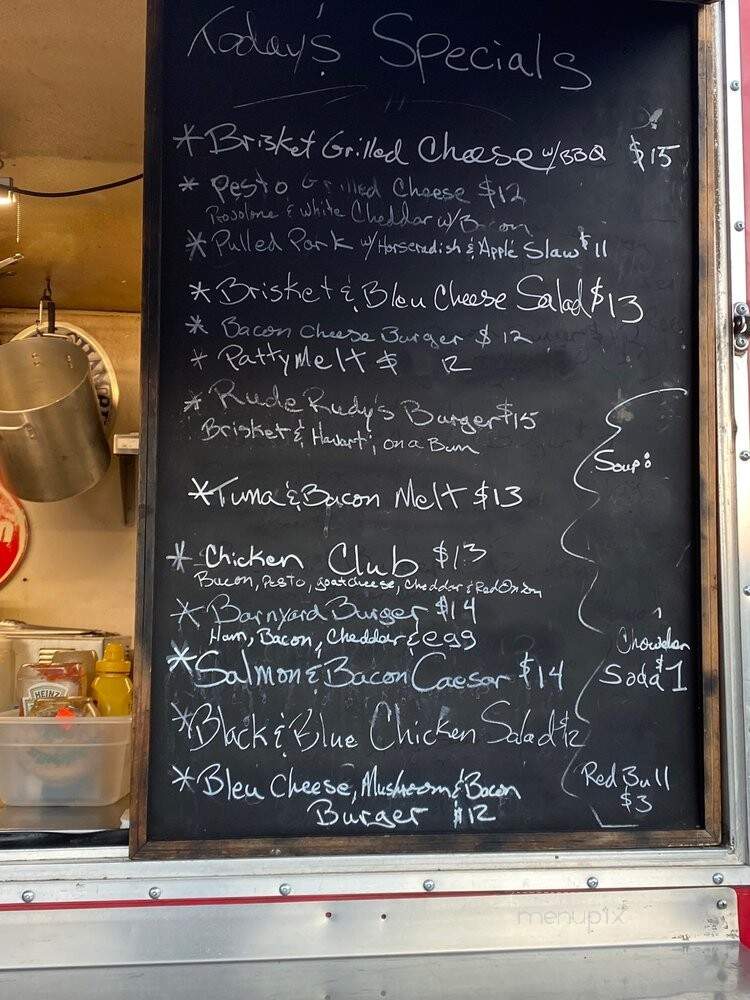 Today's Specials
* Brisket Grilled Cheese w/BBQ $15
* Pesto Grilled Cheese $12
Provolone & White Cheddar w/ Bacon
* Pulled Pork w/ Horseradish & Apple Slaw $11
* Brisket & Bleu Cheese Salad $13
* Bacon Cheese Burger $12
* Patty Melt $ 12
* Rude Rudy's Burger $15
Brisket & Havarti, on a Bun
Soup:
* Tuna & Bacon Melt $13
* Chicken Club $13
Bacon, Pesto, goat cheese, Cheddar & Red Onion
* Barnyard Burger $14
Ham, Bacon, Cheddar & egg
Chowder
* Salmon & Bacon Caesar $14
Soda $1
* Black & Blue Chicken Salad $12
* Bleu Cheese, Mushroom & Bacon
Burger $12
Red Bull
$3
HEINZ
menupix